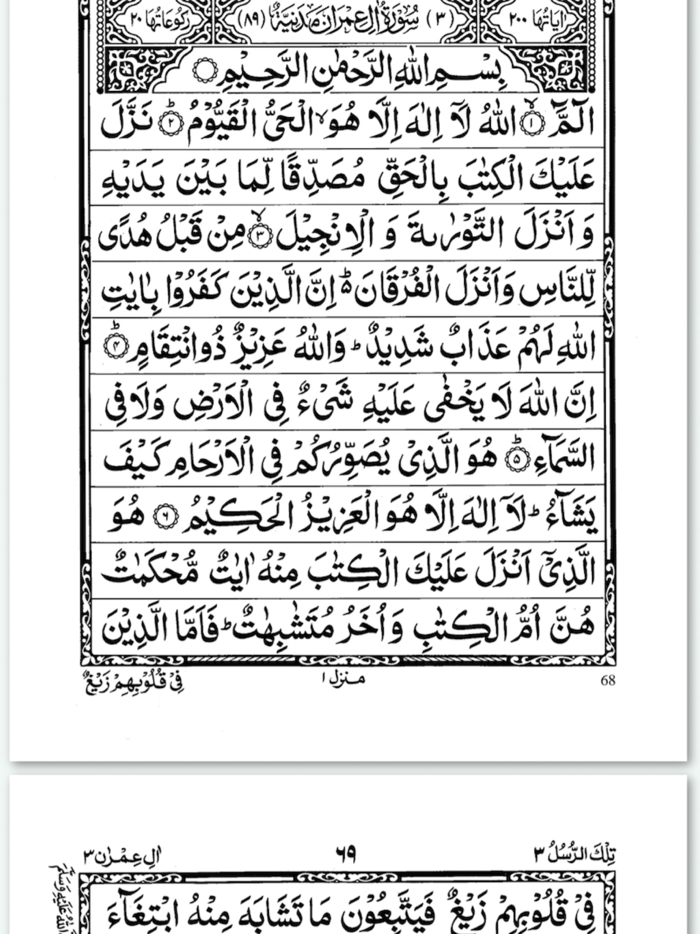 اٰیَاتُهَا ٢٠٠ (٣) سُوْرَةُ اٰلِ عِمْرٰنَ مَدَنِیَّةٌ (٨٩) رُكُوْعَاتُهَا ٢٠
بِسْمِ اللّٰهِ الرَّحْمٰنِ الرَّحِیْمِ
الٓمَّٓ ۙ﴿١﴾ اللّٰهُ لَاۤ اِلٰهَ اِلَّا هُوَ ۙ الْحَیُّ الْقَیُّوْمُ ؕ﴿٢﴾ نَزَّلَ
عَلَیْكَ الْكِتٰبَ بِالْحَقِّ مُصَدِّقًا لِّمَا بَیْنَ یَدَیْهِ
وَ اَنْزَلَ التَّوْرٰىةَ وَ الْاِنْجِیْلَ ۙ﴿٣﴾ مِنْ قَبْلُ هُدًی
لِّلنَّاسِ وَ اَنْزَلَ الْفُرْقَانَ ؕ۬ اِنَّ الَّذِیْنَ كَفَرُوْا بِاٰیٰتِ
اللّٰهِ لَهُمْ عَذَابٌ شَدِیْدٌ ؕ وَاللّٰهُ عَزِیْزٌ ذُو انْتِقَامٍ ؕ﴿٤﴾
اِنَّ اللّٰهَ لَا یَخْفٰی عَلَیْهِ شَیْءٌ فِی الْاَرْضِ وَلَا فِی
السَّمَآءِ ؕ﴿٥﴾ هُوَ الَّذِیْ یُصَوِّرُكُمْ فِی الْاَرْحَامِ كَیْفَ
یَشَآءُ ؕ لَاۤ اِلٰهَ اِلَّا هُوَ الْعَزِیْزُ الْحَكِیْمُ ﴿٦﴾ هُوَ
الَّذِیْۤ اَنْزَلَ عَلَیْكَ الْكِتٰبَ مِنْهُ اٰیٰتٌ مُّحْكَمٰتٌ
هُنَّ اُمُّ الْكِتٰبِ وَ اُخَرُ مُتَشٰبِهٰتٌ ؕ فَاَمَّا الَّذِیْنَ
68 منزل ١ فِیْ قُلُوْبِهِمْ زَیْغٌ
تِلْكَ الرُّسُلُ ٣ ٦٩ اٰلِ عِمْرٰن ٣
فِیْ قُلُوْبِهِمْ زَیْغٌ فَیَتَّبِعُوْنَ مَا تَشَابَهَ مِنْهُ ابْتِغَآءَ